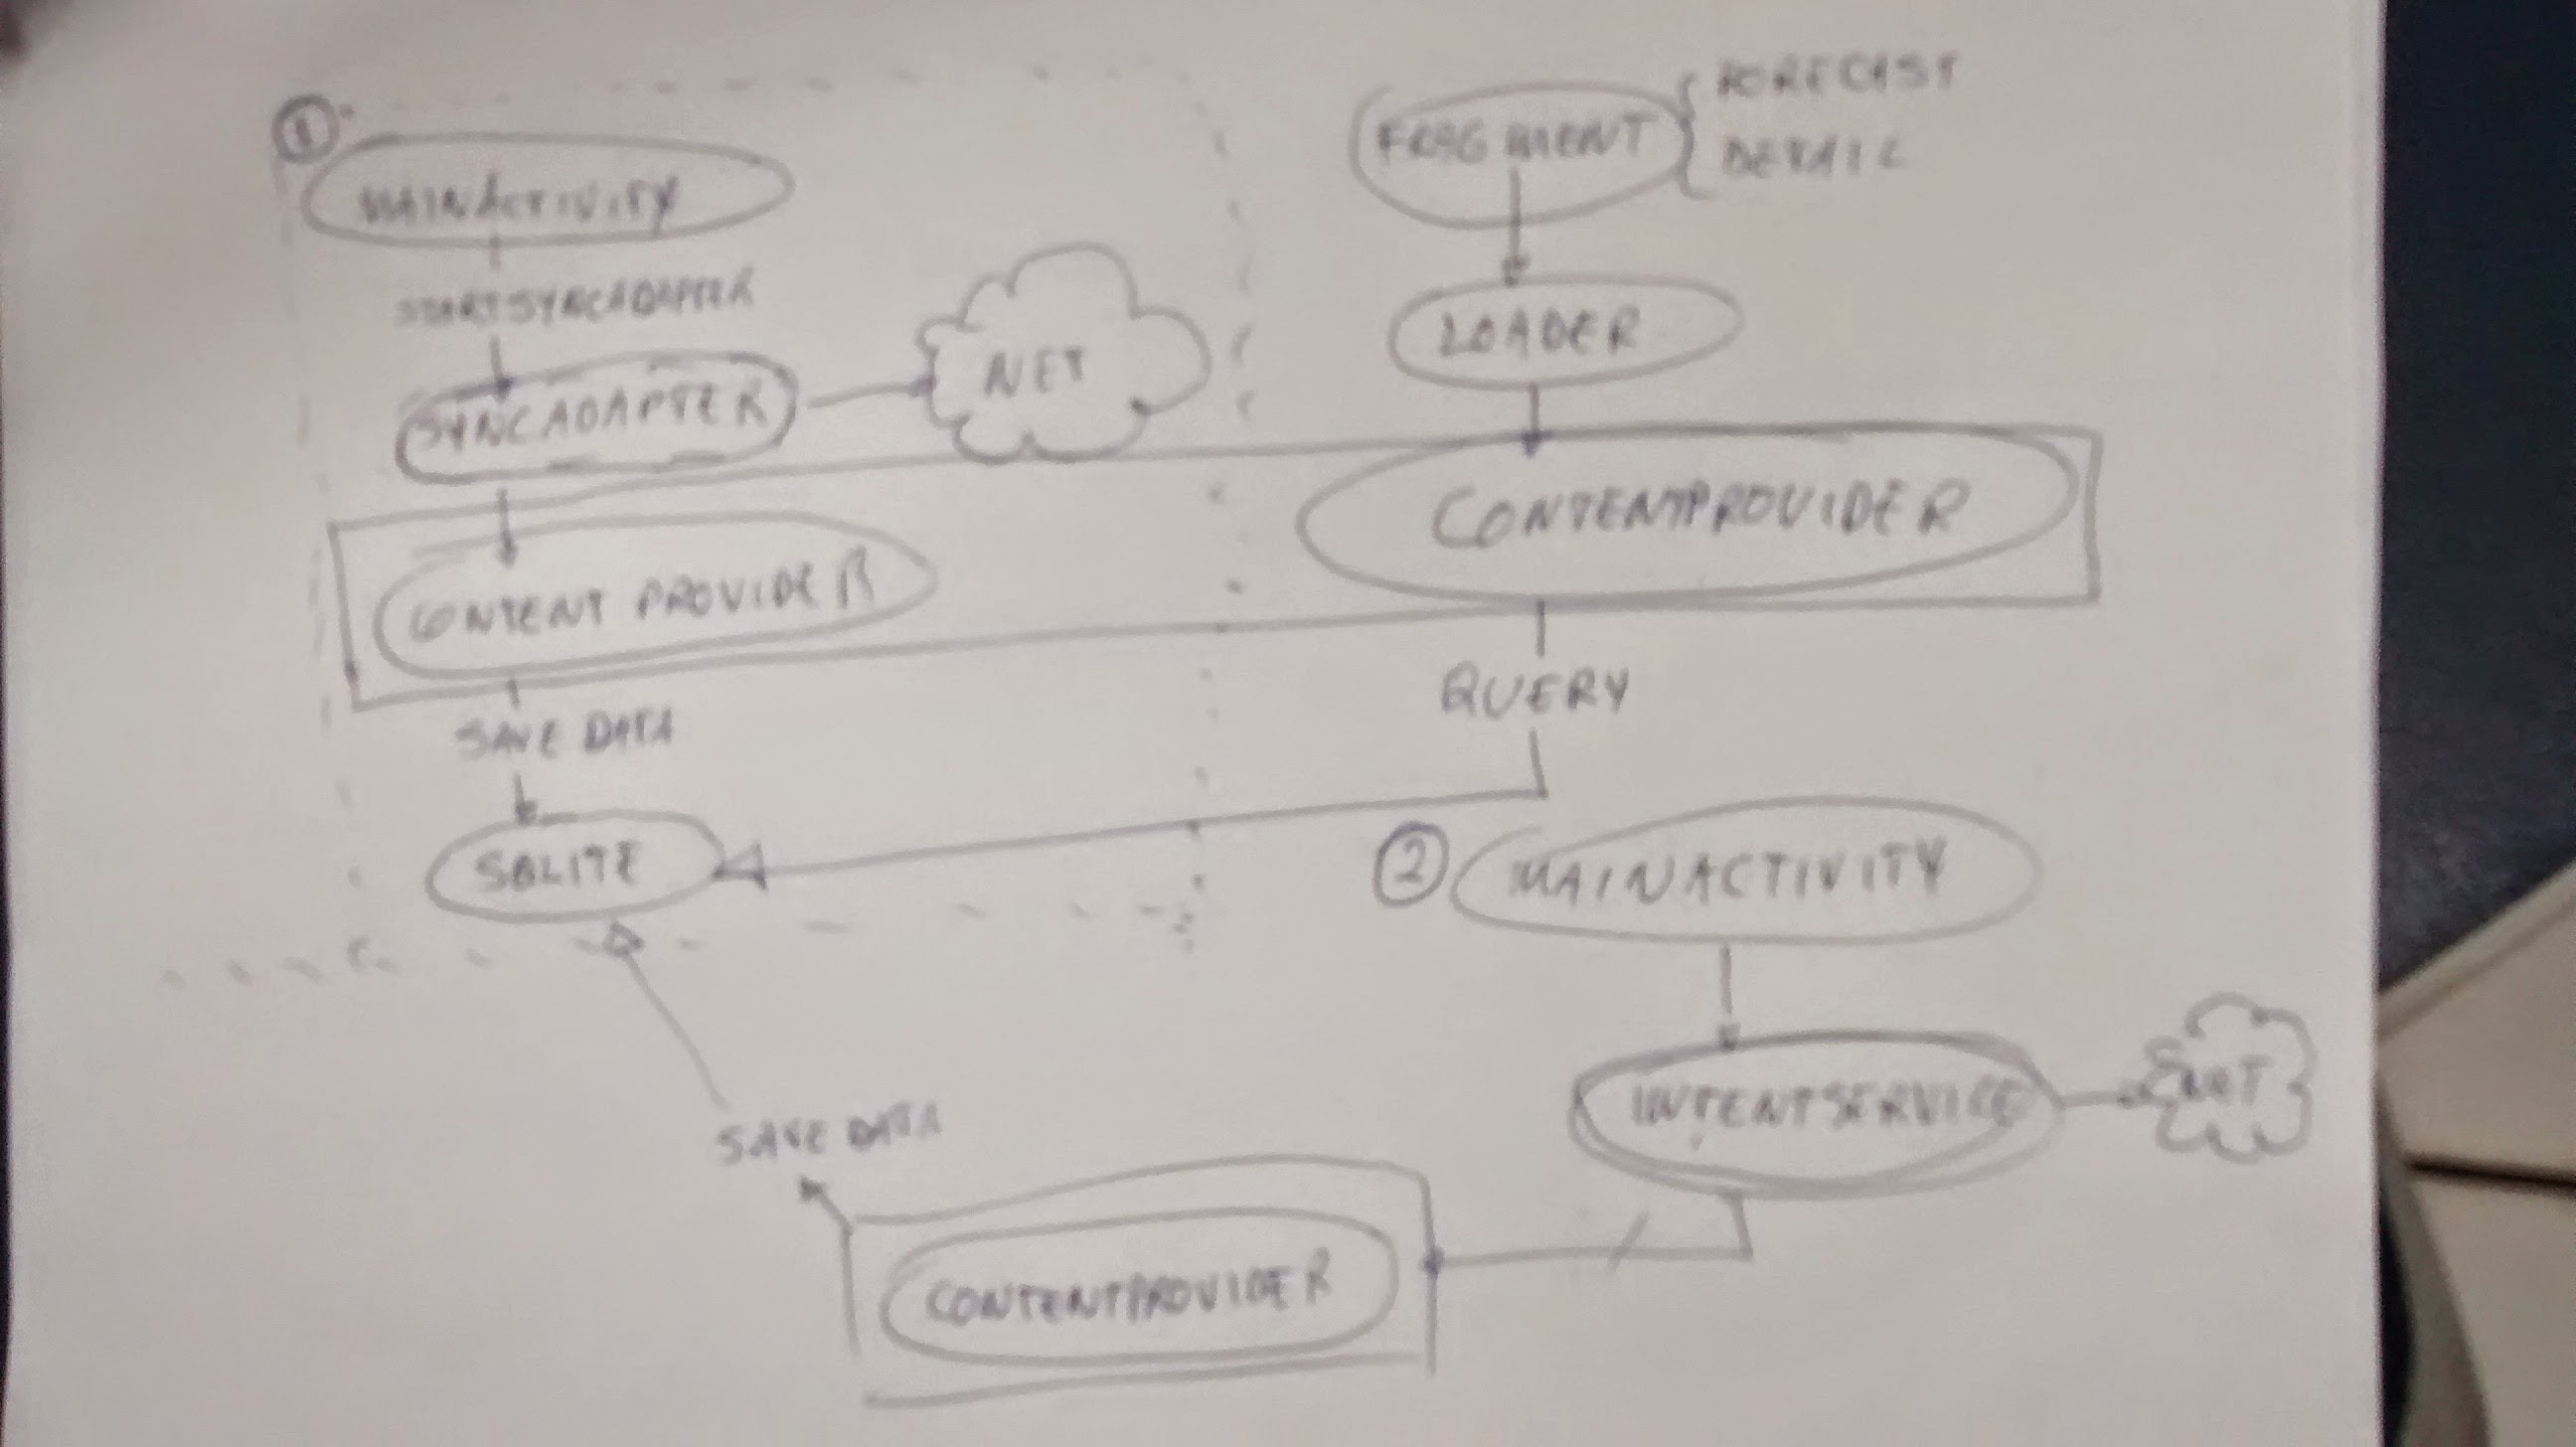 1
MAINACTIVITY
STARTSYNCADAPTER
SYNCADAPTER
NET
CONTENT PROVIDER
SAVE DATA
SQLITE
FRAGMENT
FORECAST
DETAIL
LOADER
CONTENTPROVIDER
QUERY
2
MAINACTIVITY
INTENTSERVICE
NET
CONTENTPROVIDER
SAVE DATA